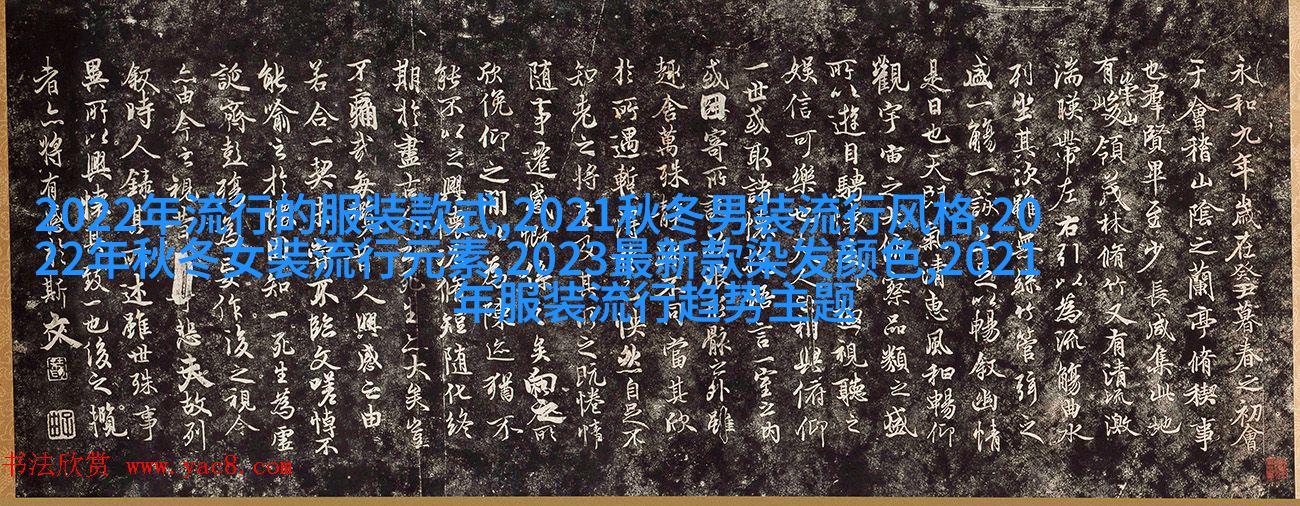 2022年流行的服装款式,2021秋冬男装流行风格,20
22年秋冬女装流行元素,2023最新款染发颜色,2021
年服装流行趋势主题
永和九年歲在癸丑暮春之初會
于會稽山陰之蘭亭脩稧事
也羣賢畢至少長咸集此地
有崇山峻領茂林脩竹又有清流激
湍暎帶左右引以為流觴曲水
列坐其次雖無絲竹管弦之
盛一觴一詠之以暢叙幽情
是日也天朗氣清惠風和暢仰
觀宇宙之大俯察品類之盛
所以遊目騁視聽之
娛信可樂也人之相與俯仰
一世或取諸懷言一室之內
或因寄所託形骸之外雖
趣舍萬殊不同當其欣
於所遇暫快然自足不
知老之將至及其之既惓情
隨事遷感慨係之矣向之所
欣俛仰之閒以為陳迹猶不
能不以之興懷脩短隨化終
期於盡古死生亦大矣豈
不痛哉每人興感之由
若合一契不臨文嗟悼不
能喻之於懷知一死生為虛
誕齊彭殤為妄作後之視今
亦由今之視昔悲夫故列
叙時人錄其述雖世殊事
異所以興懷其致一也後之攬
者亦將有於斯文
书法欣赏 www.yac8.com